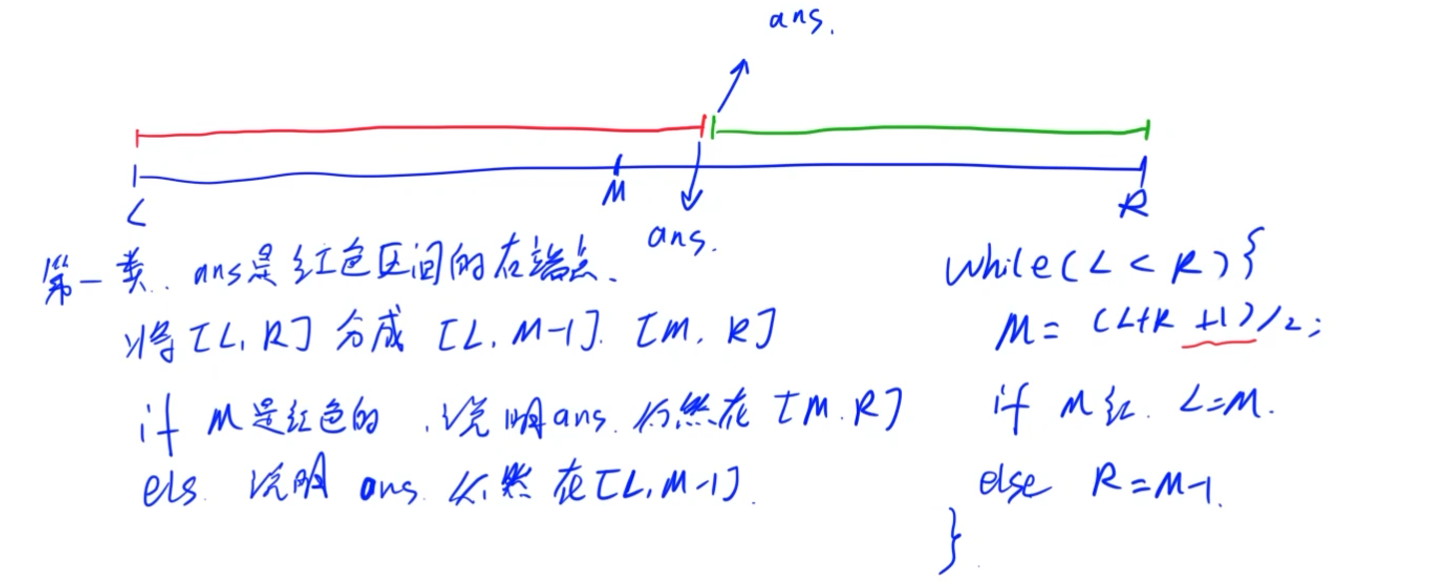 ans.
L
M
R
ans.
第一类. ans是红色区间的右端点.
将[L, R] 分成 [L, M-1]. [M, R]
if M是红色的 , 说明ans. 必然在 [M. R]
els. 说明 ans. 必然在[L, M-1].
while(L < R){
M = (L+R +1)/2;
if M红. L=M.
else R=M-1.
}